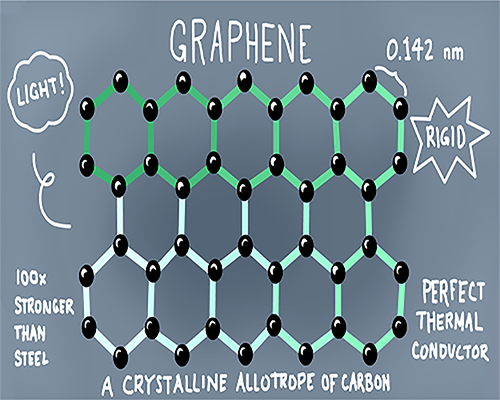 GRAPHENE
0.142 nm
LIGHT!
RIGID
100x
STRONGER
THAN
STEEL
PERFECT
THERMAL
CONDUCTOR
A CRYSTALLINE ALLOTROPE OF CARBON